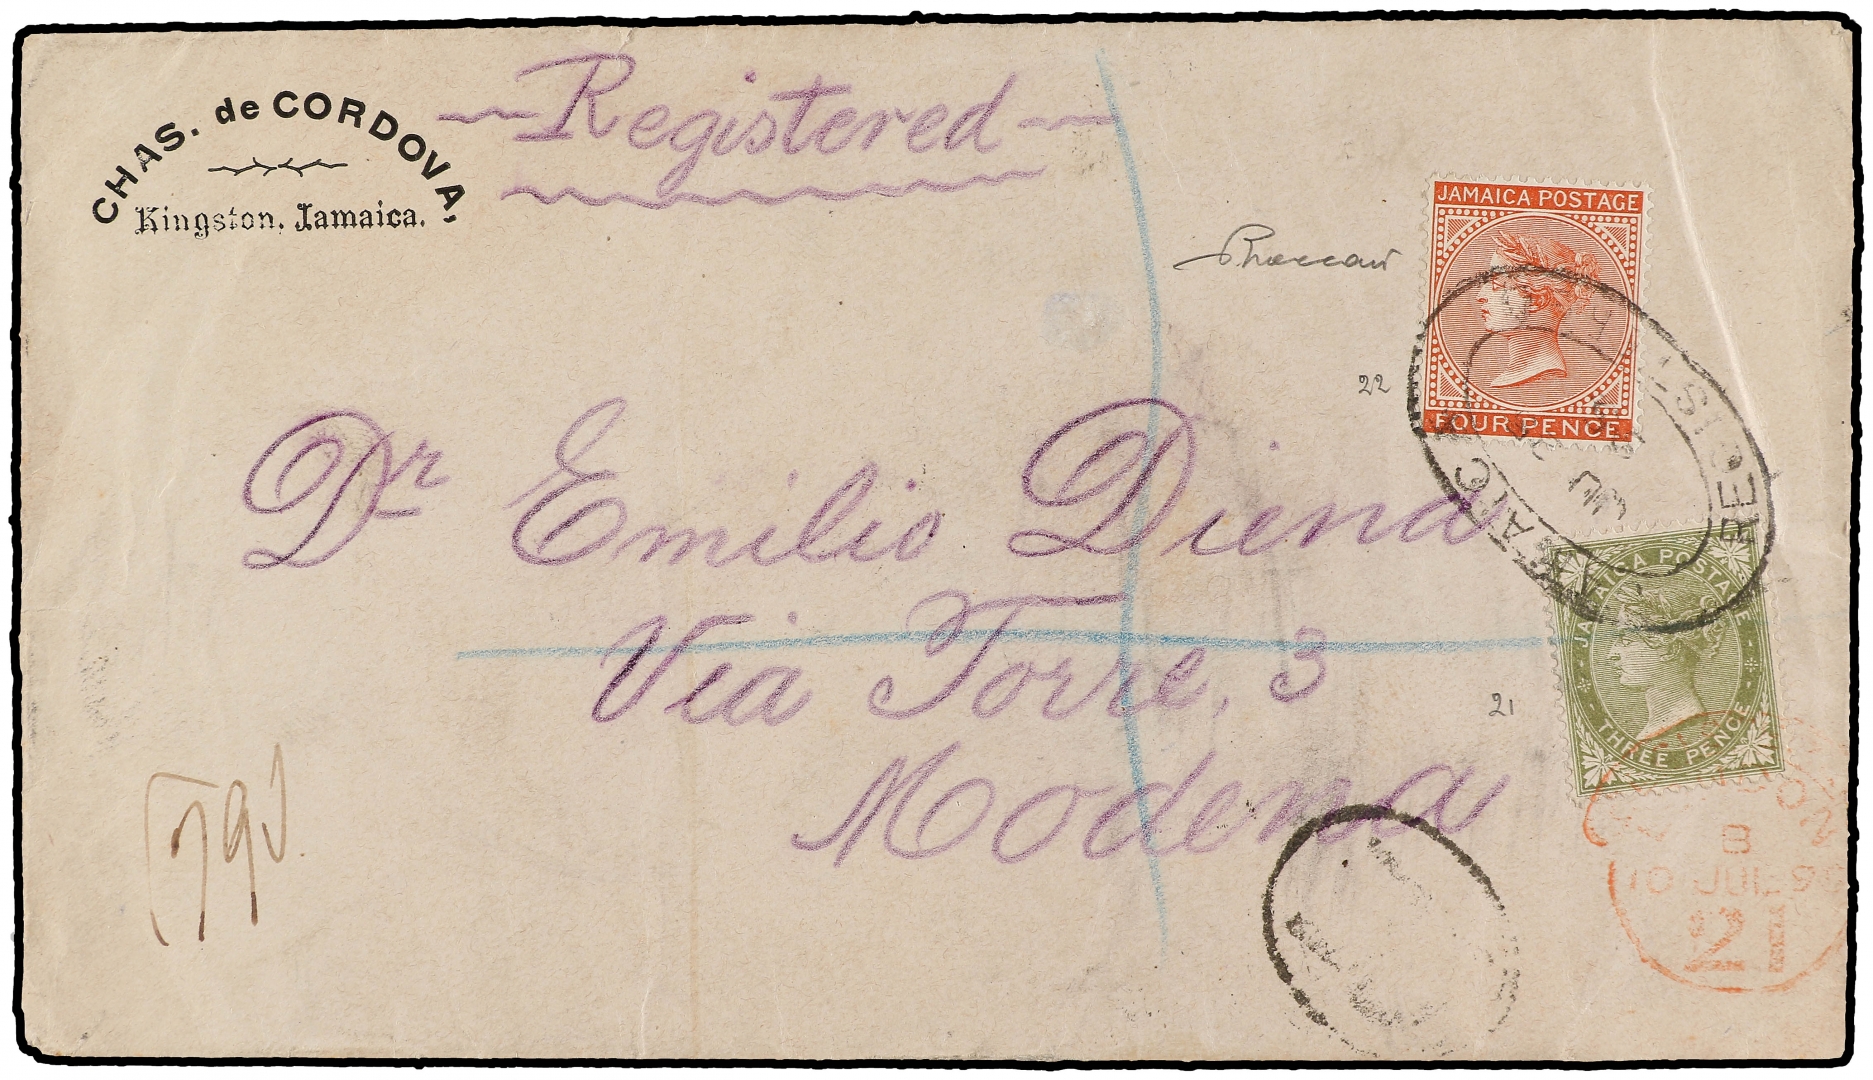 CHAS. de CORDOVA,
Kingston, Jamaica.
Registered
JAMAICA POSTAGE
FOUR PENCE
22
REGIST
JAMAICA
JAMAICA POSTAGE
THREE PENCE
21
Dr Emilio Diena
Via Torre, 3
Modena
790
B
10 JUL 9
21